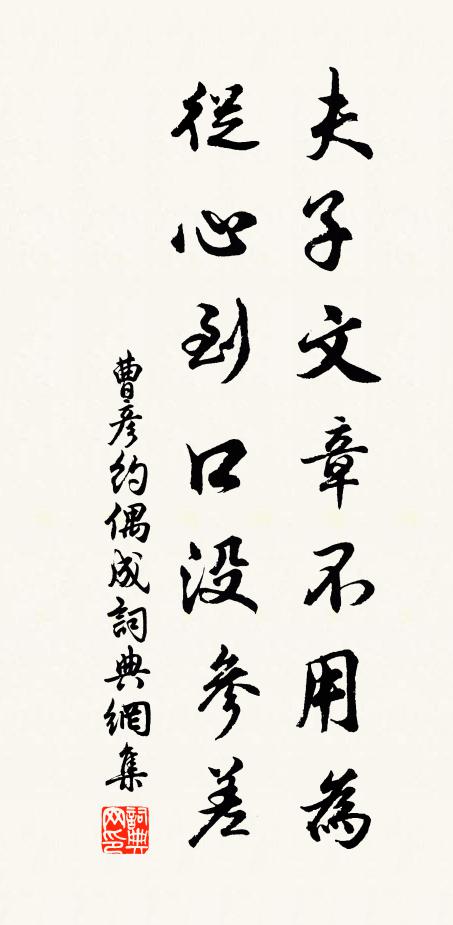 夫子文章不用為
從心到口没參差
曹彥約偶成詞典網集
詞典网印